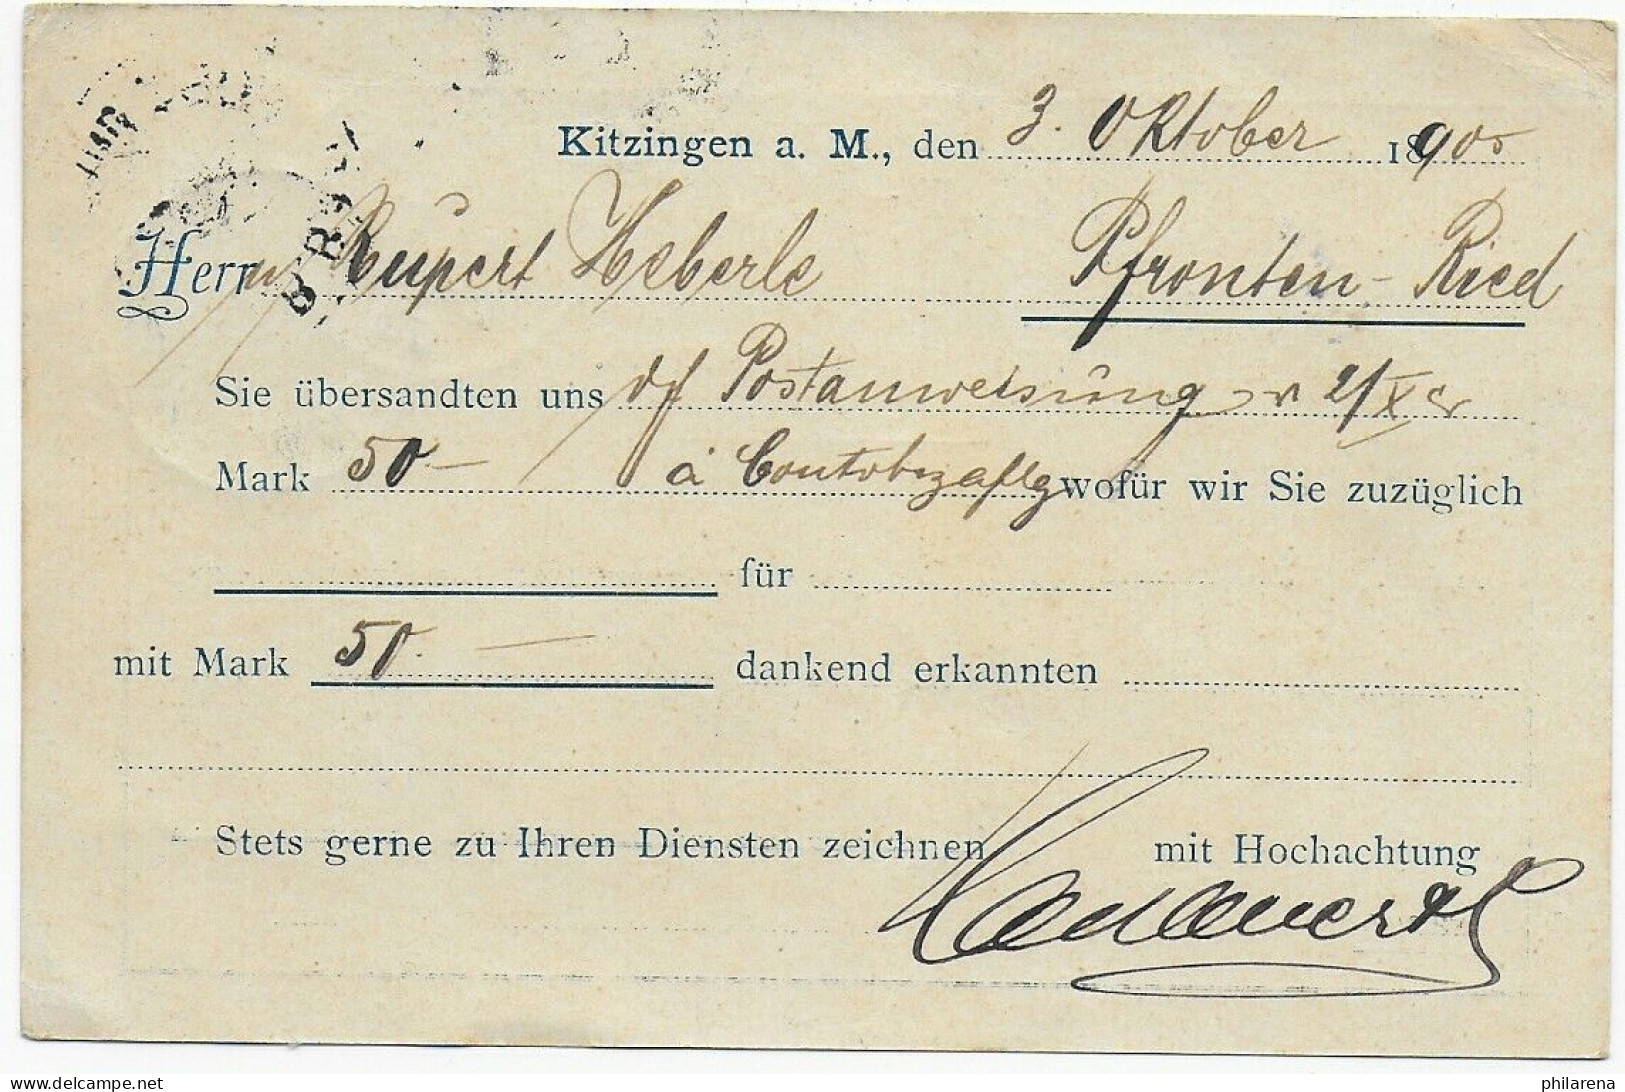 Kitzingen a. M., den 3. Oktober 1900
Herrn Rupert Heberle Pfronten-Ried
Sie übersandten uns Postanweisung 2/X cr
Mark 50 — à wofür wir Sie zuzüglich
für
mit Mark 50. — dankend erkannten
Stets gerne zu Ihren Diensten zeichnen mit Hochachtung
philarena